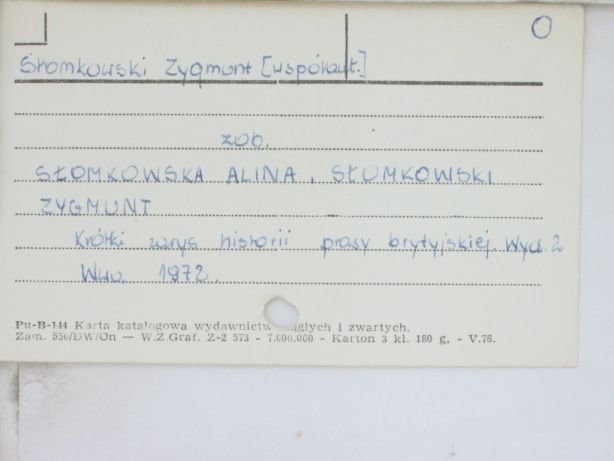 O
Słomkowski Zygmunt [współaut.]
zob.
SŁOMKOWSKA ALINA, SŁOMKOWSKI
ZYGMUNT
Krótki zarys historii prasy brytyjskiej. Wyd. 2
1972.
Pu-B-144 Karta katalogowa wydawnictw i zwartych.
Zam. 556/DW/On — W.Z.Graf. Z-2 573 - 7.000.000 - Karton 3 kl. 180 g. - V.76.